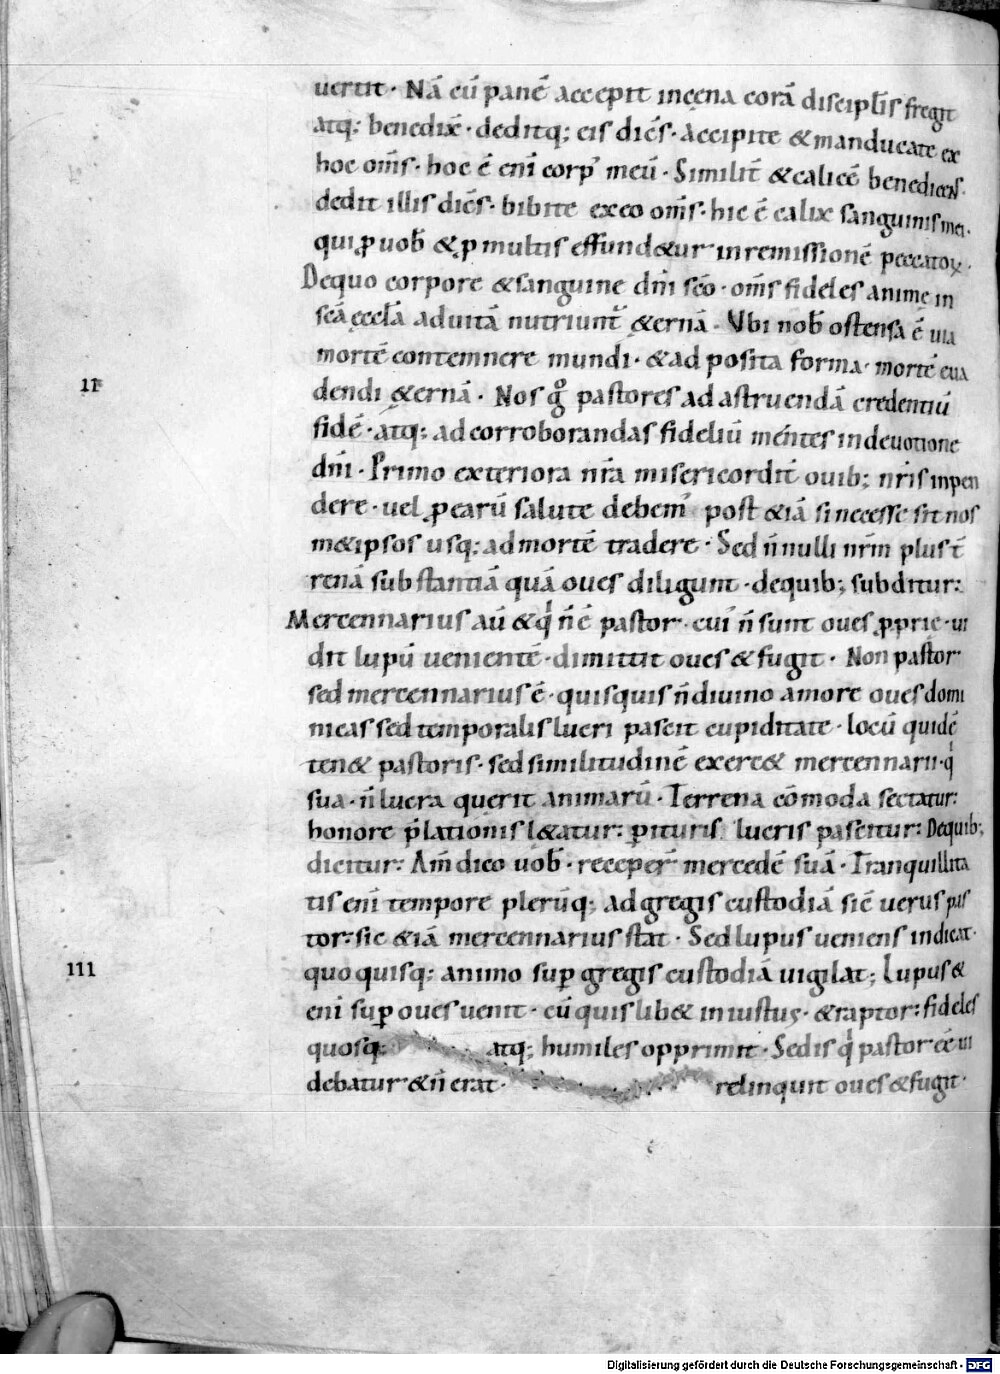 uertit · Nā cū panē accepit incena corā discipłis fregit
atq; benedixit · deditq; eis dicēs · accipite & manducate ex
hoc om̄s · hoc ē eni corpꝰ meū · Similit̄ & calicē benedicens ·
dedit illis dicēs · bibite ex eo om̄s · hic ē calix sanguinis mei ·
qui ꝓ uob̄ & ꝓ multis effundetur in remissionē peccatoꝝ ·
De quo corpore & sanguine dn̄i sc̄o · om̄s fideles anime in
sc̄ā ecclā ad uitā nutriunt̄ &ernā · Vbi nob̄ ostensa ē uia
mortē contemnere mundi · & adposita forma · mortē eua
11 dendi &ernā · Nos g° pastores ad astruendā credentiū
fidē · atq; ad corroborandas fideliū mentes in deuotione
dn̄i · Primo exteriora nr̄a misericordit̄ ouib; nr̄is inpen
dere · uel ꝓ earū salute debemꝰ post &iā si necesse sit nos
m&ipsos usq; ad mortē tradere · Sed n̄nulli nr̄m plus t̄
renā substantiā quā oues diligunt · de quib; subditur:
Mercennarius aū & q̍ n̄ ē pastor · cuiꝰ n̄ sunt oues ꝓprie · ui
dit lupū uenientē · dimittit oues & fugit · Non pastor
sed mercennarius ē · quisquis n̄ diuino amore oues domi
nicas sed temporalis lucri pascit cupiditate · locū quidē
ten& pastoris · sed similitudinē exerc& mercennarii · q̍
sua · n̄ lucra querit animarū · Terrena cōmoda sectatur:
honore p̄lationis l&atur: ꝑituris lucris pascitur: De quib;
dicitur: Am̄ dico uob̄ · receper̄ mercedē suā · Tranquillita
tis eni tempore plerūq; ad gregis custodiā sic̄ uerus pas
tor: sic &iā mercennarius stat · Sed lupus ueniens indicat ·
111 quo quisq; animo sup̄ gregis custodiā uigilat; Lupus &
eni sup̄ oues uenit · cū quis lib& iniustus · & raptor: fideles
quosq; atq; humiles opprimit · Sed is q̍ pastor ēē ui
debatur & n̄ erat · relinquit oues & fugit ·
Digitalisierung gefördert durch die Deutsche Forschungsgemeinschaft - DFG